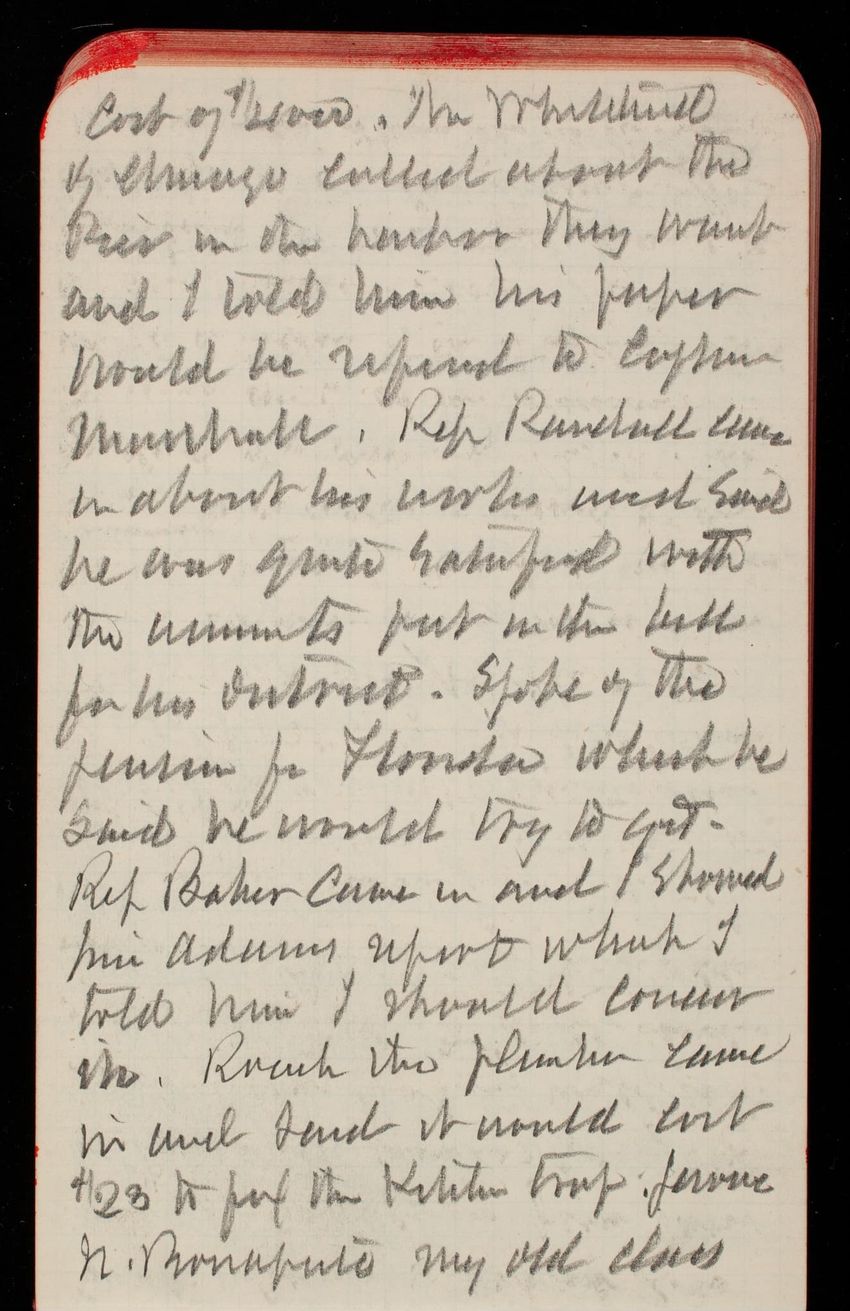 Cost of $2500. Mr Whitehead
of Chicago called about the
Pier in the harbor they want
and I told him his paper
would be refered to Captain
Marshall. Rep Randall came
in about his works and said
he was quite satisfied with
the amounts put in the bill
for his district. Spoke of the
pension for Florida which he
said he would try to get.
Rep Baker came in and I showed
him Adams report which I
told him I should concur
in. Roach the plumber came
in and said it would cost
$23 to fix the Kitchen trap. Jerome
N. Bonaparte my old class